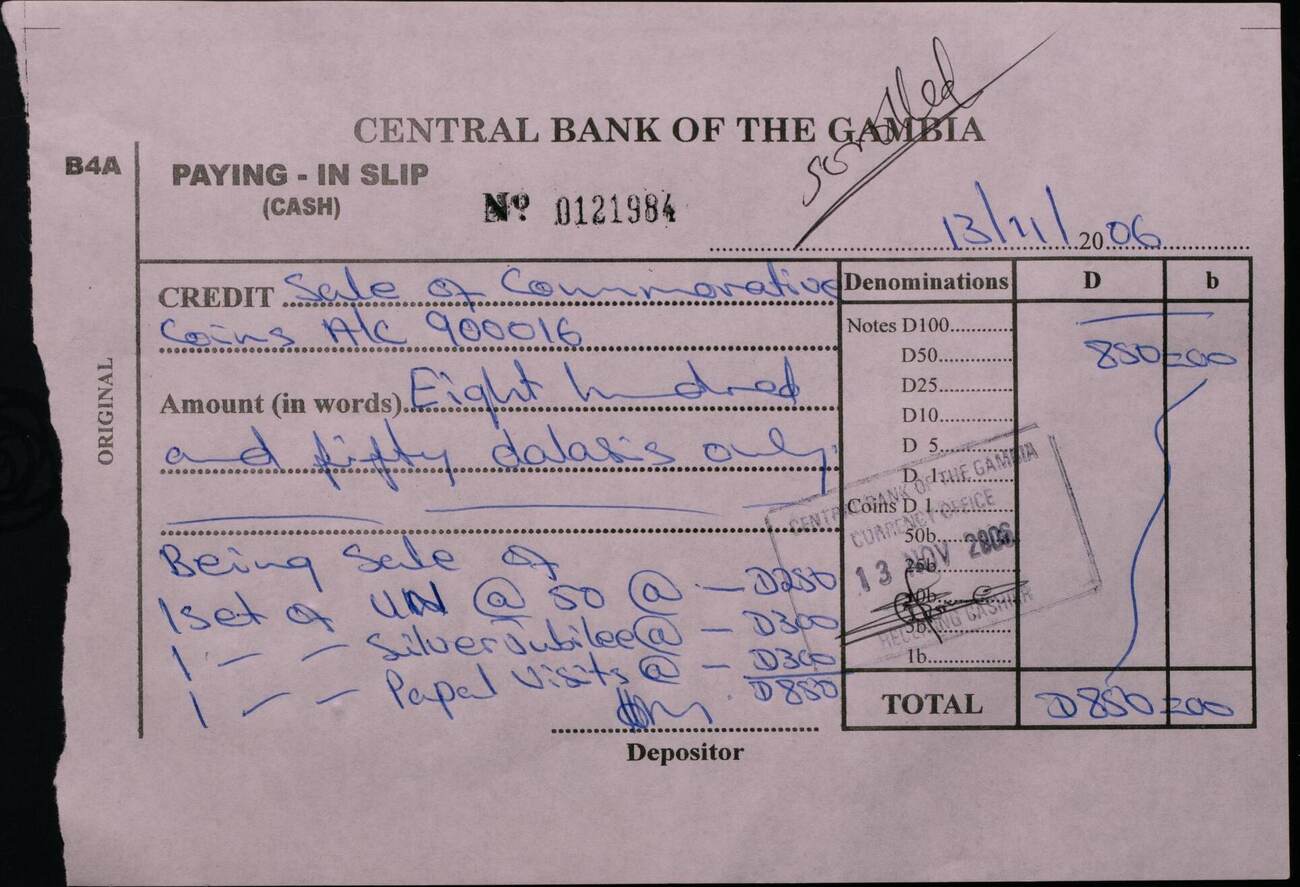 CENTRAL BANK OF THE GAMBIA
B4A
PAYING - IN SLIP
(CASH)
Nº 0121984
13/11/2006
ORIGINAL
CREDIT Sale of Commorative
Coins A/C 900016
Amount (in words) Eight hundred
and fifty dalasis only.
Being Sale of
1 set of UN @ 50 @ — D250
1 — — Silver Jubilee @ — D300
1 — — Papal Visits @ — D300
D850
Depositor
Denominations D b
Notes D100
D50 850=00
D25
D10
D 5
D 1
Coins D 1
50b
25b
10b
5b
1b
TOTAL D850=00
CENTRAL BANK OF THE GAMBIA
CURRENCY OFFICE
13 NOV 2006
RECEIVING CASHIER